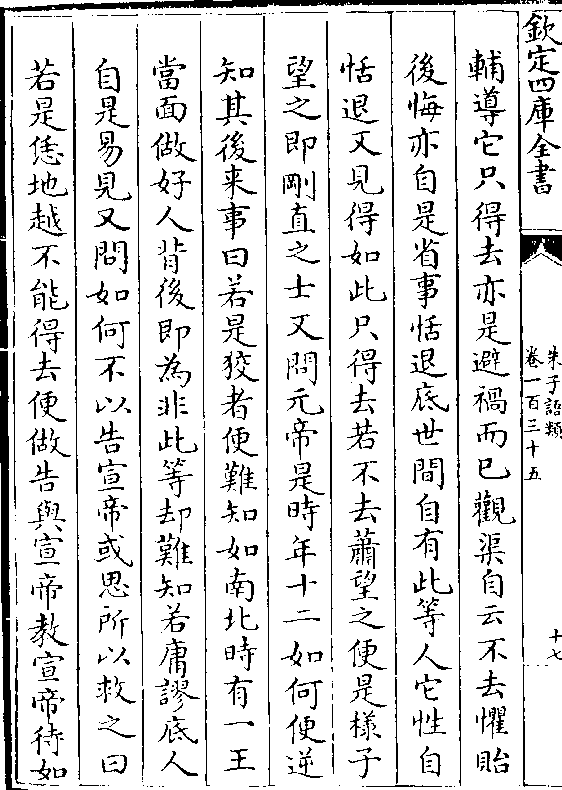 欽定四庫全書
朱子語類
卷一百三十五
十七
輔導它只得去亦是避禍而已觀渠自云不去懼貽
後悔亦自是省事恬退底世間自有此等人它性自
恬退又見得如此只得去若不去蕭望之便是樣子
望之即剛直之士又問元帝是時年十二如何便逆
知其後来事曰若是狡者便難知如南北時有一王
當面做好人背後即為非此等却難知若庸謬底人
自是易見又問如何不以告宣帝或思所以救之曰
若是恁地越不能得去便做告與宣帝教宣帝待如